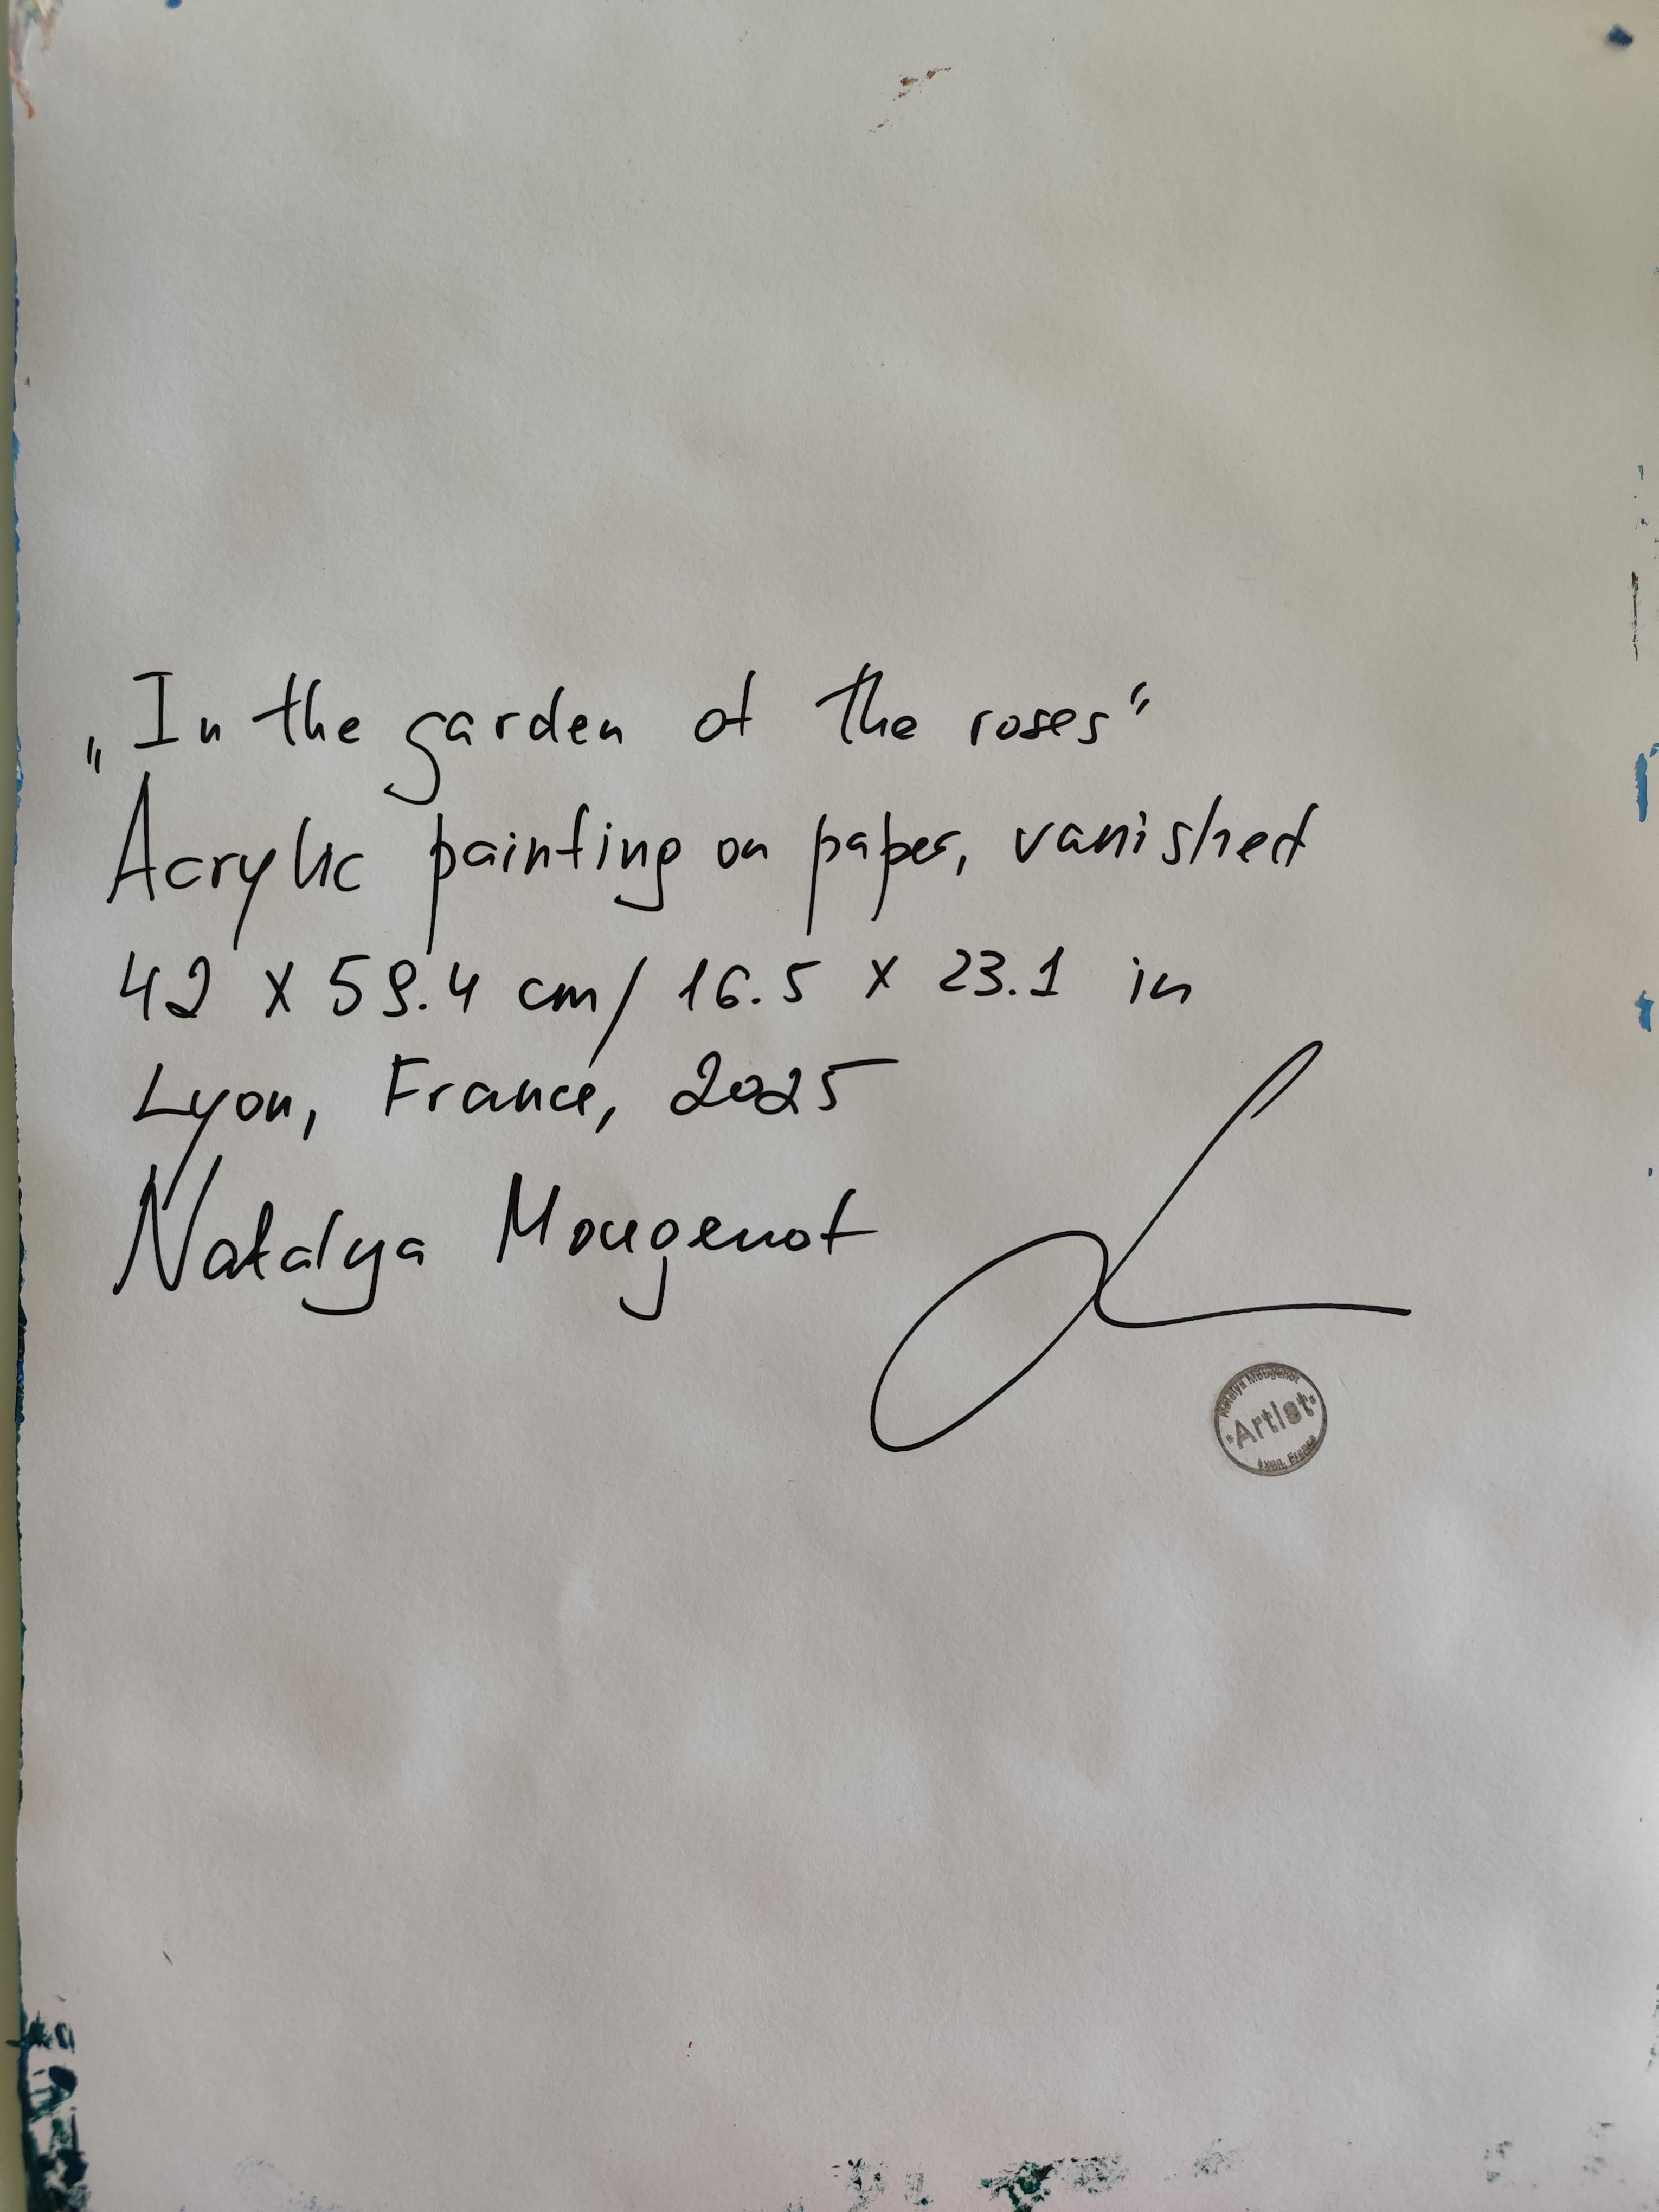 „In the garden of the roses"
Acrylic painting on paper, vanished
42 x 59.4 cm/ 16.5 x 23.1 in
Lyon, France, 2025
Natalya Mougenot
Natalya Mougenot
*Artist*
Lyon, France